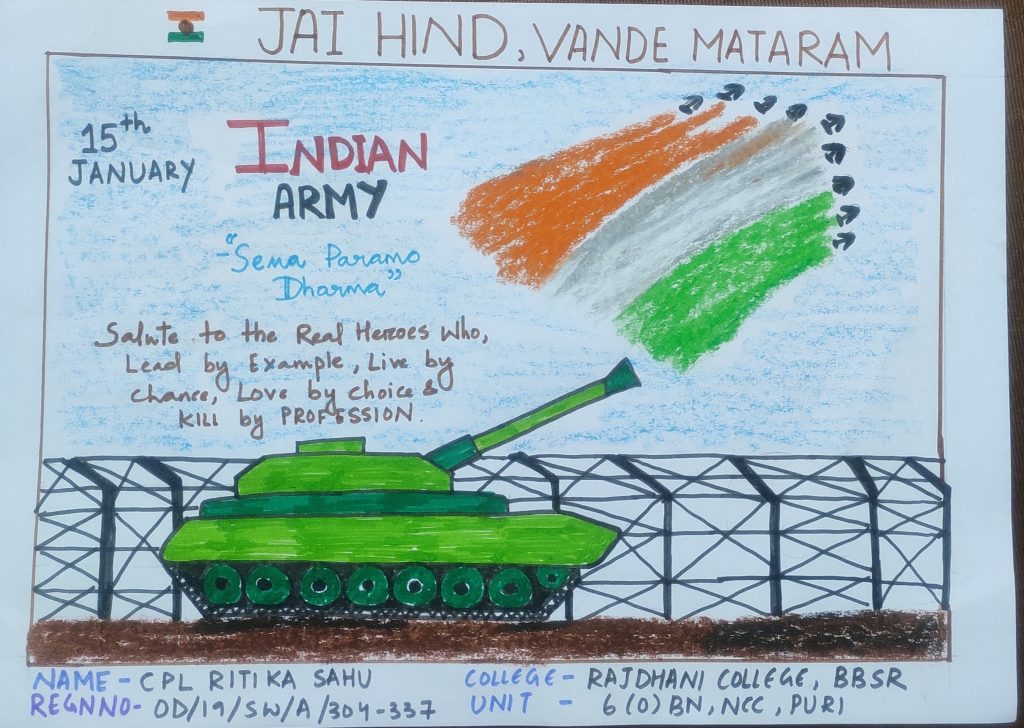 JAI HIND, VANDE MATARAM
15th
JANUARY
INDIAN
ARMY
"Sena Paramo
Dharma"
Salute to the Real Heroes Who,
Lead by Example, Live by
chance, Love by choice &
KILL by PROFESSION.
NAME - CPL RITIKA SAHU
REGNNO- OD/19/SW/A/304-337
COLLEGE- RAJDHANI COLLEGE, BBSR
UNIT - 6(O) BN, NCC, PURI